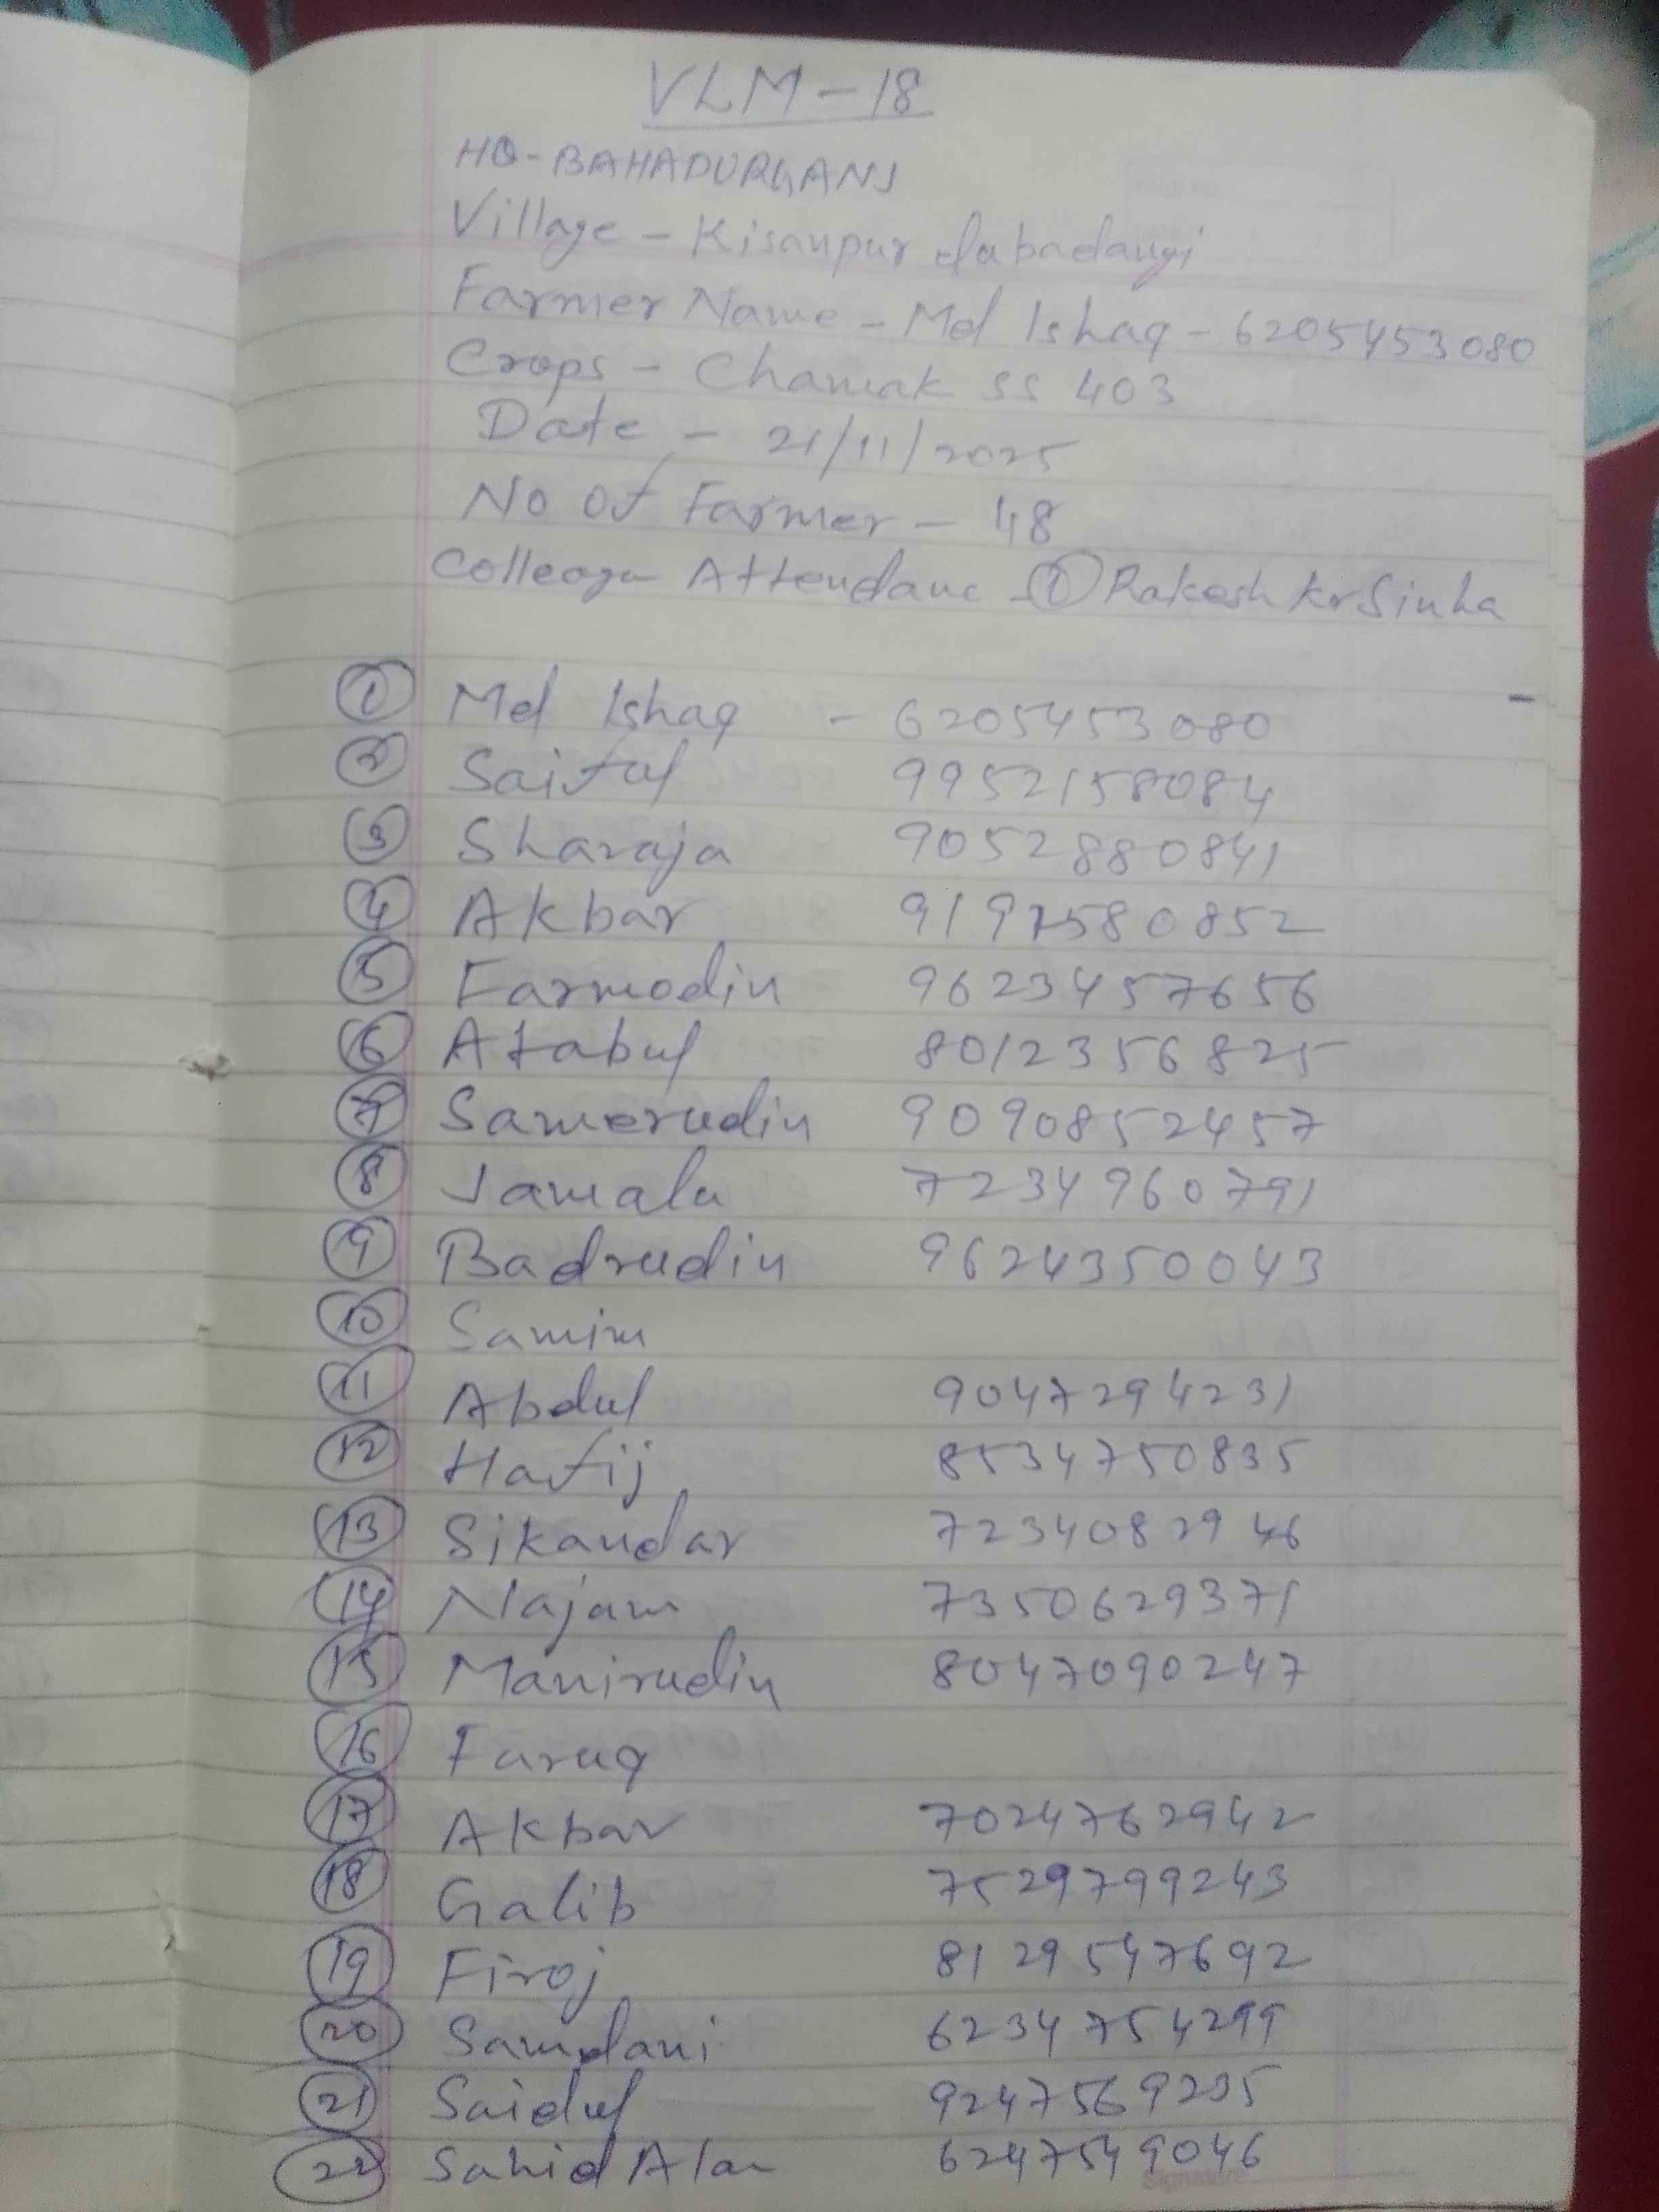 VLM - 18
HQ - BAHADURGANJ
Village - Kisanpur dabadangi
Farmer Name - Md Ishaq - 6205453080
Crops - Chamak SS 403
Date - 21/11/2025
No Of Farmer - 48
Colleagu Attendanc - ① Rakesh Kr Sinha
① Md Ishaq - 6205453080
② Saiful 9952158084
③ Sharaja 9052880841
④ Akbar 9197580852
⑤ Farmodin 9623457656
⑥ Afabul 8012356825
⑦ Samerudin 9090852457
⑧ Jamalu 7234960791
⑨ Badrudin 9624350043
⑩ Samim
⑪ Abdul 9047294231
⑫ Hafij 8534750835
⑬ Sikandar 7234082946
⑭ Najam 7350629371
⑮ Manirudin 8047090247
⑯ Faruq
⑰ Akbar 7024762942
⑱ Galib 7529799243
⑲ Firoj 8129547692
⑳ Samdani 6234754299
㉑ Saidul 9247569235
㉒ Sahid Alam 6247549046